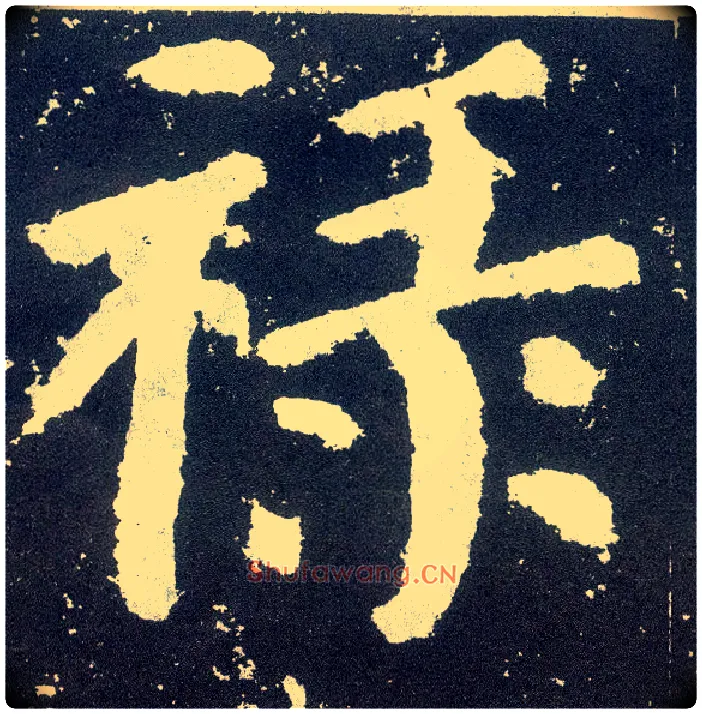 祿
Shufawang.CN